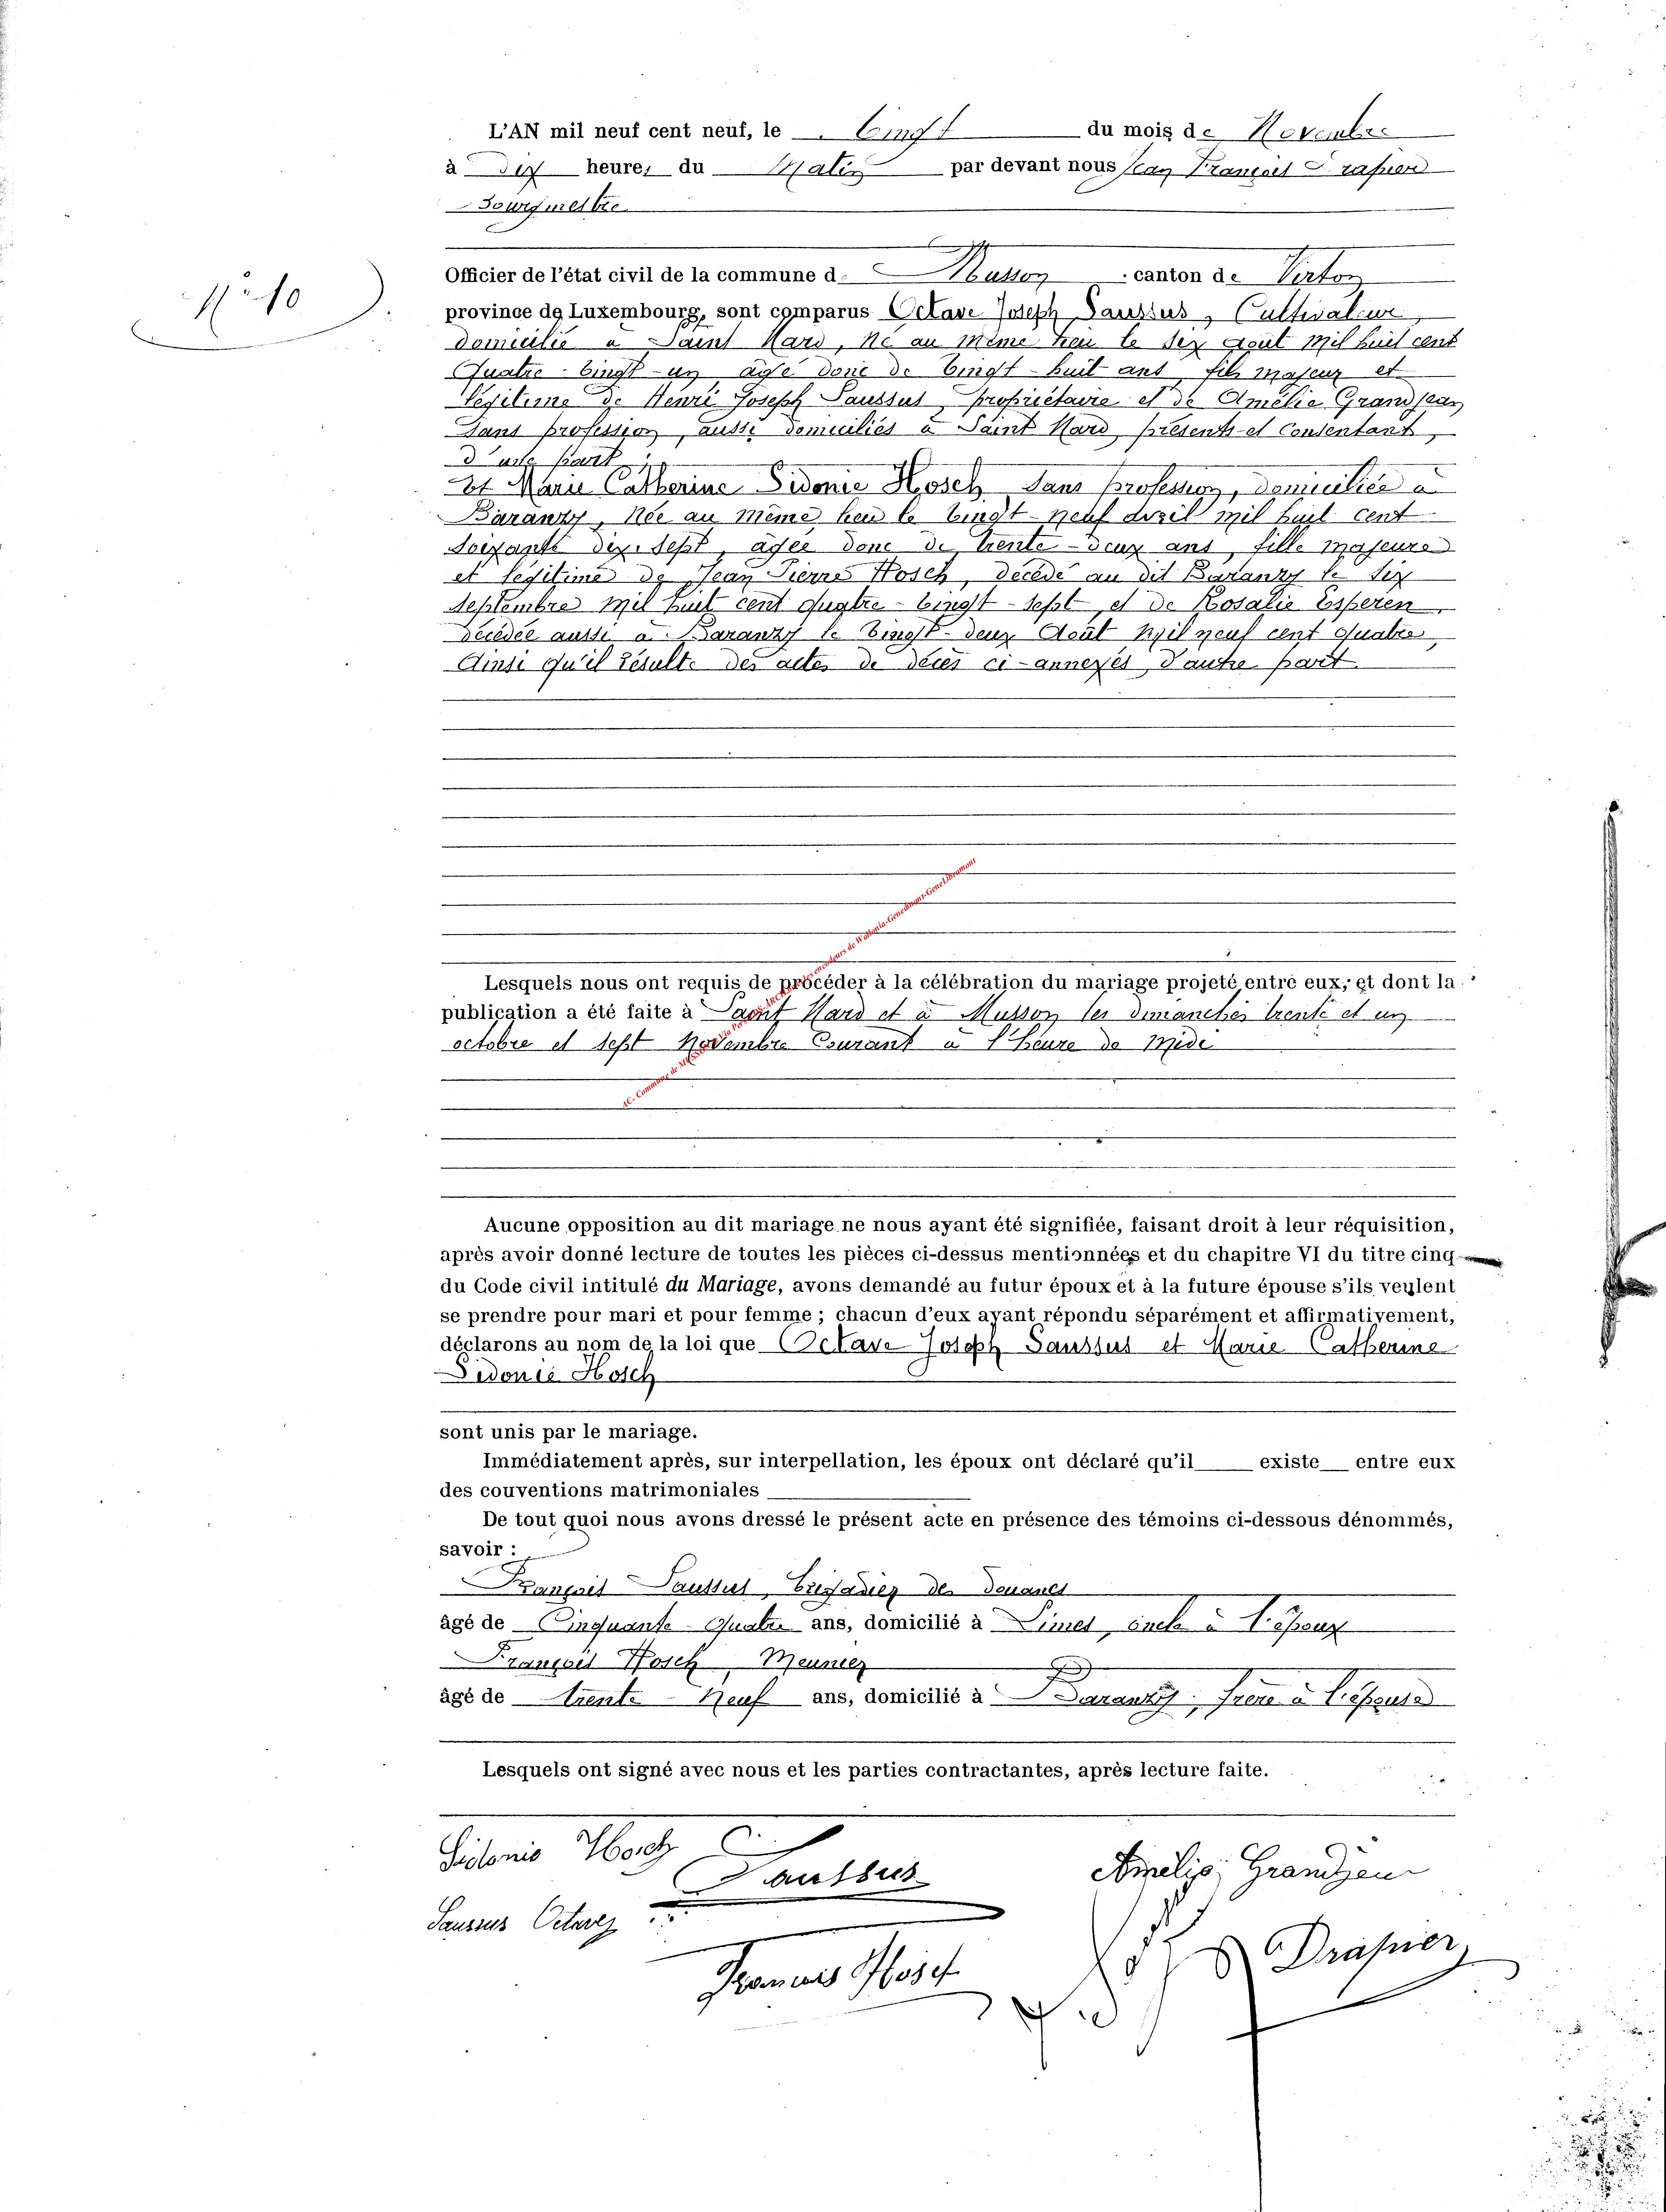 L'AN mil neuf cent neuf, le Vingt du mois de Novembre
à dix heures du Matin par devant nous Jean François Drapier
Bourgmestre
N° 10
Officier de l'état civil de la commune de Musson canton de Virton
province de Luxembourg, sont comparus Octave Joseph Saussus, Cultivateur,
domicilié à Saint Mard, né au même lieu le dix Août mil huit cent
Quatre-Vingt-un âgé donc de Vingt-huit ans, fils majeur et
légitime de Henri Joseph Saussus, propriétaire et de Amélie Grandjean
Sans profession, aussi domiciliés à Saint Mard, présents et consentant,
d'une part ;
Et Marie Catherine Sidonie Hosch Sans profession, domiciliée à
Baranzy, née au même lieu le Vingt-neuf avril mil huit cent
soixante dix-sept, âgée donc de trente-deux ans, fille majeure
et légitime de Jean Pierre Hosch, décédé au dit Baranzy le six
septembre mil huit cent quatre-vingt-sept, et de Rosalie Esperen
décédée aussi à Baranzy le Vingt-deux Août mil neuf cent quatre,
Ainsi qu'il résulte des actes de décès ci-annexés, d'autre part.
Lesquels nous ont requis de procéder à la célébration du mariage projeté entre eux, et dont la
publication a été faite à Saint Mard et à Musson les dimanches trente et un
octobre et sept Novembre Courant à l'heure de Midi
AC- Commune de MUSSON Via encodeurs de Wallonia-Genedinant-GeneLibramont
Aucune opposition au dit mariage ne nous ayant été signifiée, faisant droit à leur réquisition,
après avoir donné lecture de toutes les pièces ci-dessus mentionnées et du chapitre VI du titre cinq
du Code civil intitulé du Mariage, avons demandé au futur époux et à la future épouse s'ils veulent
se prendre pour mari et pour femme ; chacun d'eux ayant répondu séparément et affirmativement,
déclarons au nom de la loi que Octave Joseph Saussus et Marie Catherine
Sidonie Hosch
sont unis par le mariage.
Immédiatement après, sur interpellation, les époux ont déclaré qu'il existe entre eux
des couventions matrimoniales
De tout quoi nous avons dressé le présent acte en présence des témoins ci-dessous dénommés,
savoir :
François Saussus, brigadier des Douanes
âgé de Cinquante-Quatre ans, domicilié à Limes, oncle à l'époux
François Hosch, Meunier
âgé de trente-Neuf ans, domicilié à Baranzy, frère à l'épouse
Lesquels ont signé avec nous et les parties contractantes, après lecture faite.
Sidonie Hosch
Saussus
Amélie Grandjean
Saussus Octave
Francois Hosch
Drapier